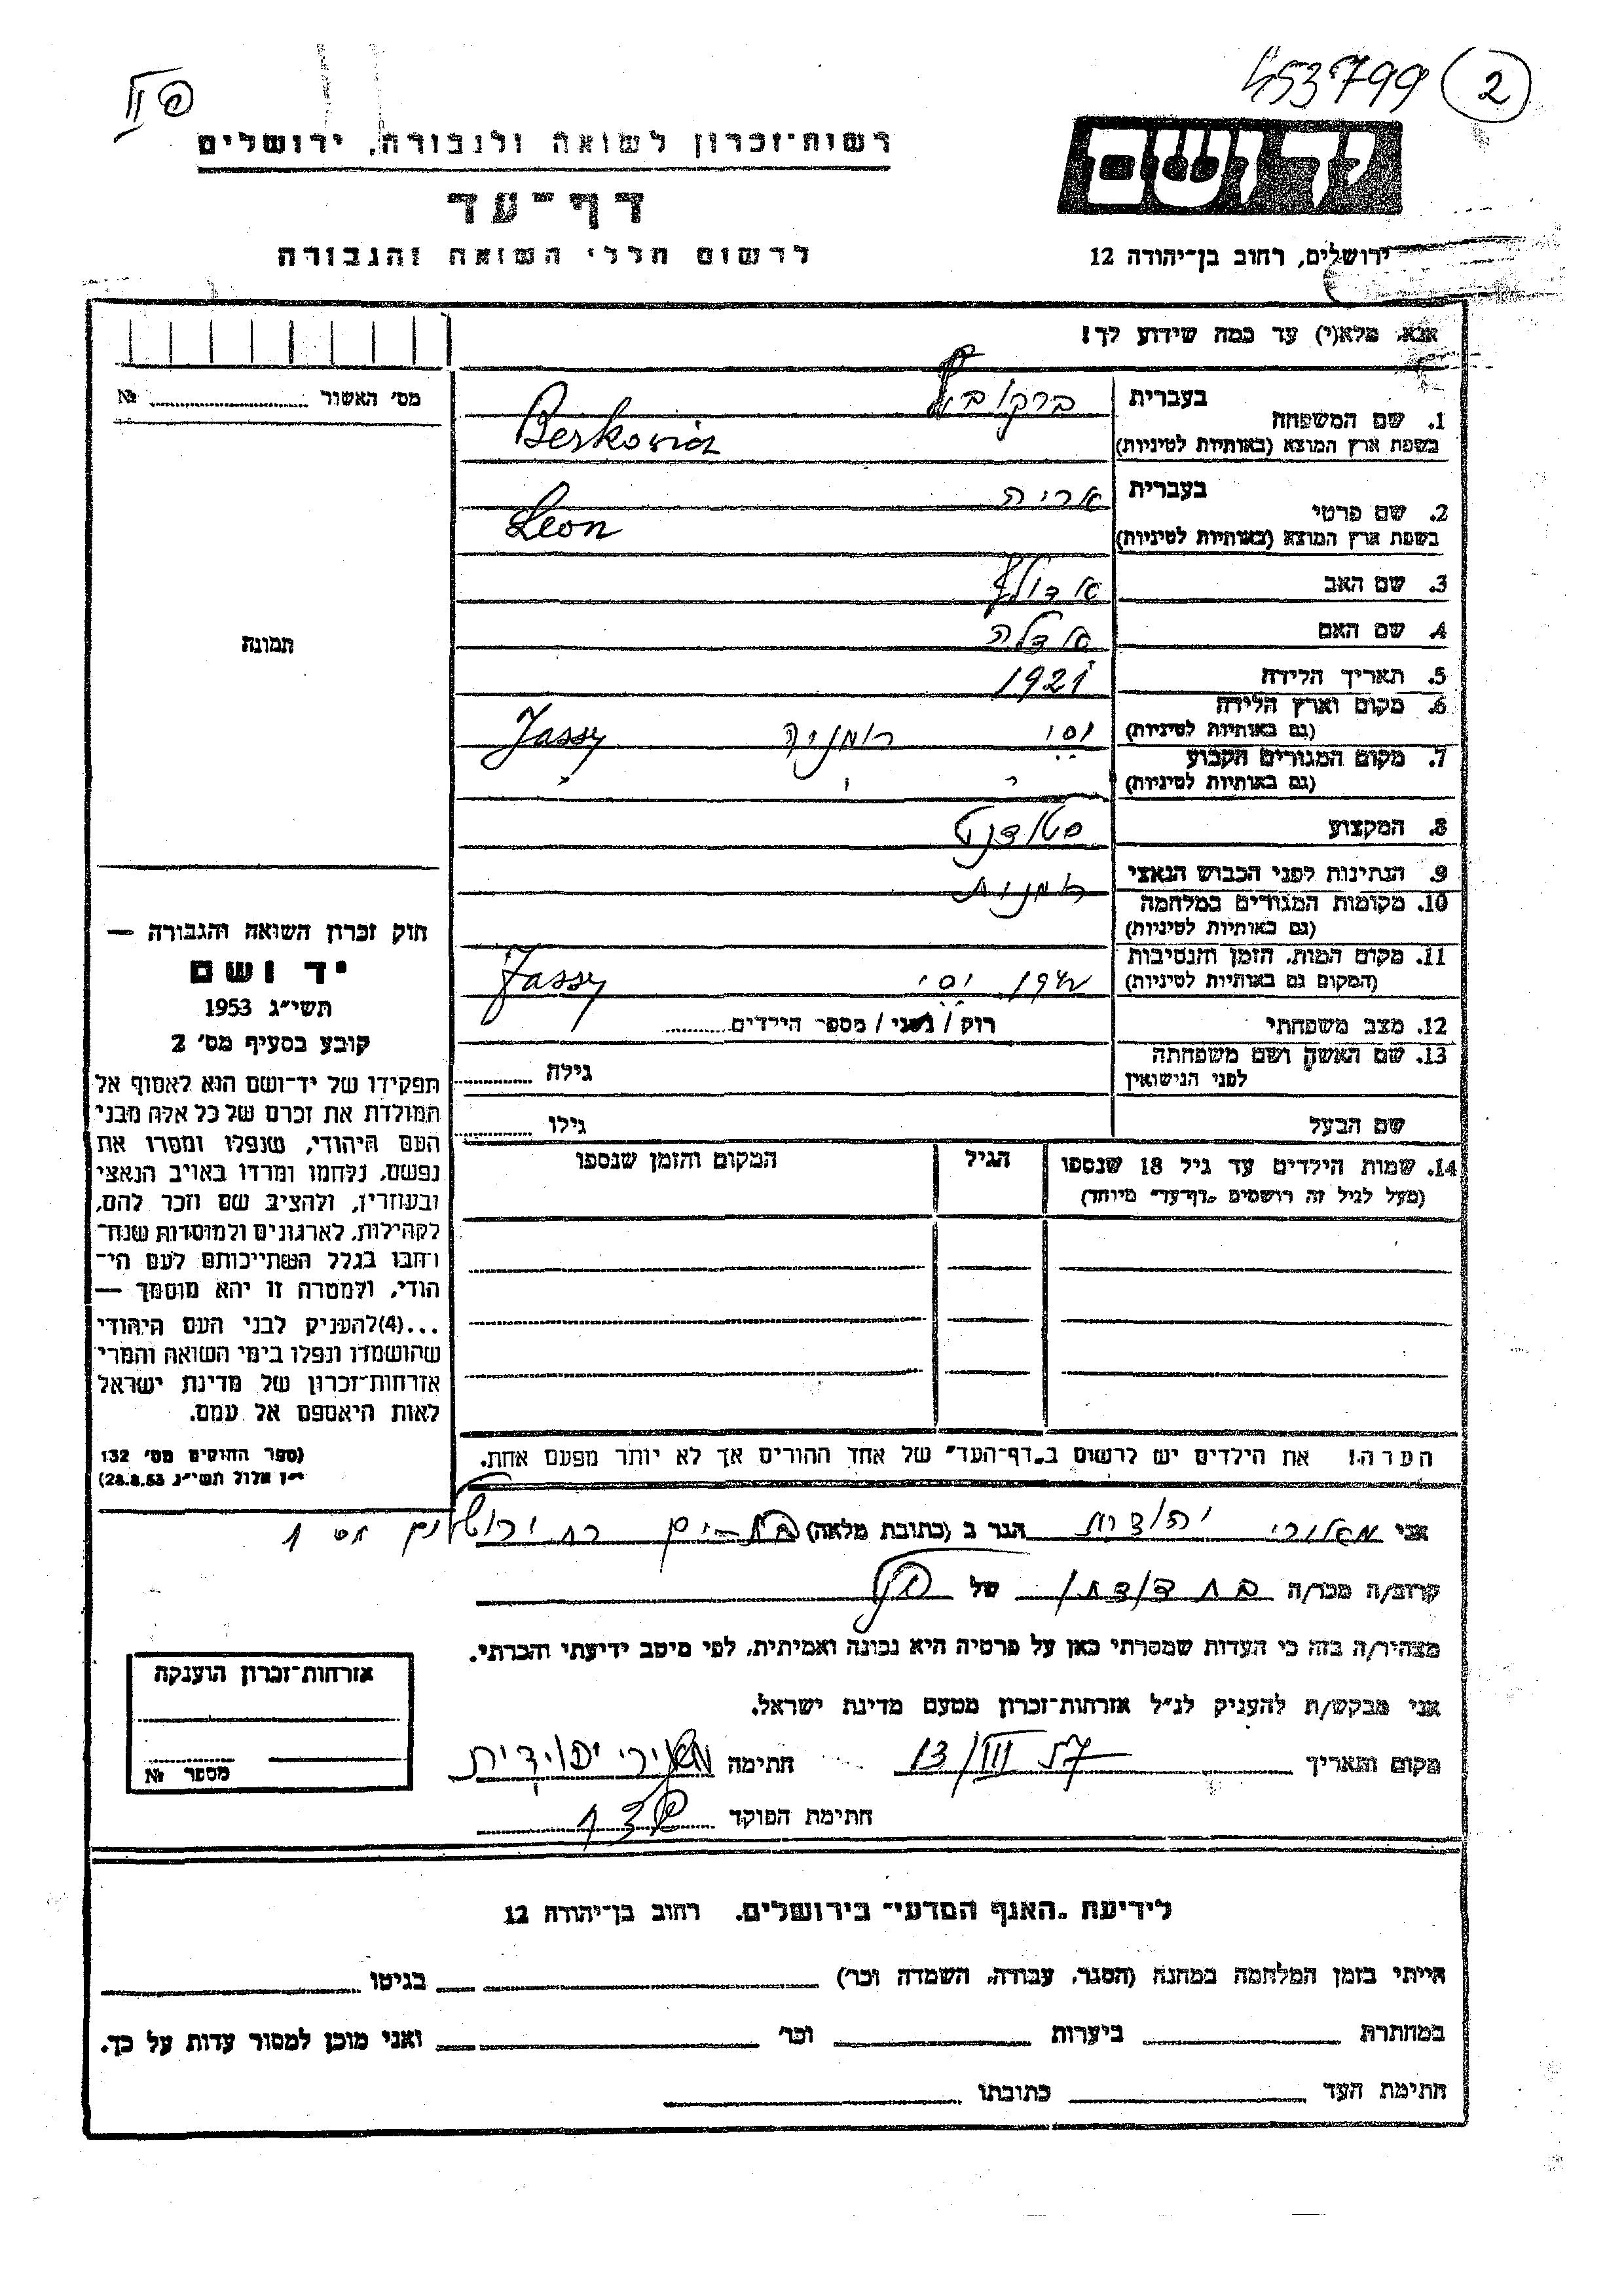 453799 2
פ II
יד ושם
רשות-זכרון לשואה ולגבורה, ירושלים
דף-עד
לרשום חללי השואה והגבורה
ירושלים, רחוב בן-יהודה 12
אנא, מלא(י) עד כמה שידוע לך!
מס' האשור № 
1. שם המשפחה בעברית ברקוביץ
בשפת ארץ המוצא (באותיות לטיניות) Berkovici
2. שם פרטי בעברית אריה
בשפת ארץ המוצא (באותיות לטיניות) Leon
3. שם האב אדולף
4. שם האם אדלה
5. תאריך הלידה 1921
6. מקום וארץ הלידה
(גם באותיות לטיניות) יסי רומניה Jassy
7. מקום המגורים הקבוע
(גם באותיות לטיניות) " " "
8. המקצוע סטודנט
9. הנתינות לפני הכבוש הנאצי רומנית
10. מקומות המגורים במלחמה
(גם באותיות לטיניות)
11. מקום המות, הזמן והנסיבות
(המקום גם באותיות לטיניות) יסי Jassy
12. מצב משפחתי רוק / נשוי / מספר הילדים
13. שם האשה ושם משפחתה
לפני הנישואין גילה
שם הבעל גילו
14. שמות הילדים עד גיל 18 שנספו הגיל המקום והזמן שנספו
(מעל לגיל זה רושמים "דף-עד" מיוחד)
הערה! את הילדים יש לרשום ב"דף-העד" של אחד ההורים אך לא יותר מפעם אחת.
תמונה
חוק זכרון השואה והגבורה —
יד ושם
תשי"ג 1953
קובע בסעיף מס' 2
תפקידו של יד-ושם הוא לאסוף אל
המולדת את זכרם של כל אלה מבני
העם היהודי, שנפלו ומסרו את
נפשם, נלחמו ומרדו באויב הנאצי
ובעוזריו, ולהציב שם וזכר להם,
לקהילות, לארגונים ולמוסדות שנח-
רחבו בגלל השתייכותם לעם הי-
הודי, ולמטרה זו יהא מוסמך —
...(4)להעניק לבני העם היהודי
שהושמדו ונפלו בימי השואה והמרי
אזרחות-זכרון של מדינת ישראל
לאות היאספם אל עמם.
(ספר החוקים מס' 132
י"ז אלול תשי"ג 28.8.53)
אני מאורי יהודית הגר ב (כתובת מלאה) בת-ים רח ירושלים 1
קרוב/ה מכר/ה בת דודתו של
מצהיר/ה בזה כי העדות שמסרתי כאן על פרטיה היא נכונה ואמיתית, לפי מיטב ידיעתי והכרתי.
אני מבקש/ת להעניק לנ"ל אזרחות-זכרון מטעם מדינת ישראל.
מקום ותאריך 13/III חתימה מאורי יהודית
חתימת הפוקד
אזרחות-זכרון הוענקה
מספר №
לידיעת "האגף המדעי" בירושלים, רחוב בן-יהודה 12
הייתי בזמן המלחמה במחנה (הסגר, עבודה, השמדה וכו') בגיטו
במחתרת ביערות וכו' ואני מוכן למסור עדות על כך.
חתימת העד כתובתו